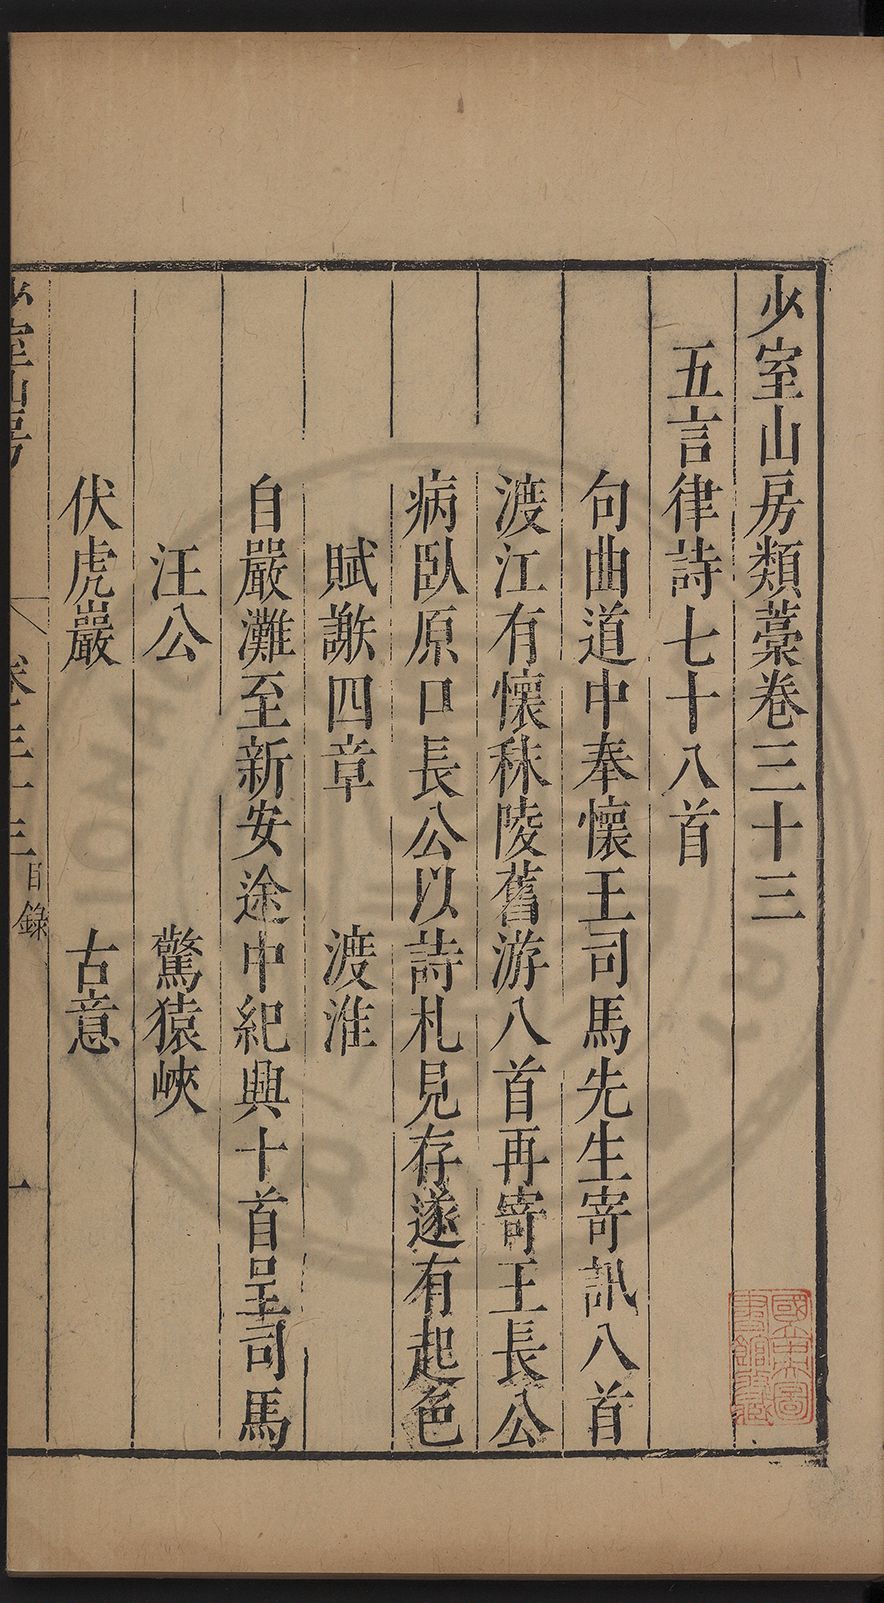 少室山房類藁卷三十三
五言律詩七十八首
句曲道中奉懷王司馬先生寄訊八首
渡江有懷秣陵舊游八首再寄王長公
病臥原口長公以詩札見存遂有起色
賦謝四章　渡淮
自嚴灘至新安途中紀興十首呈司馬
汪公　驚猿峽
伏虎巖　古意
少室山房　卷三十三目錄　一
國立中央圖書館藏書